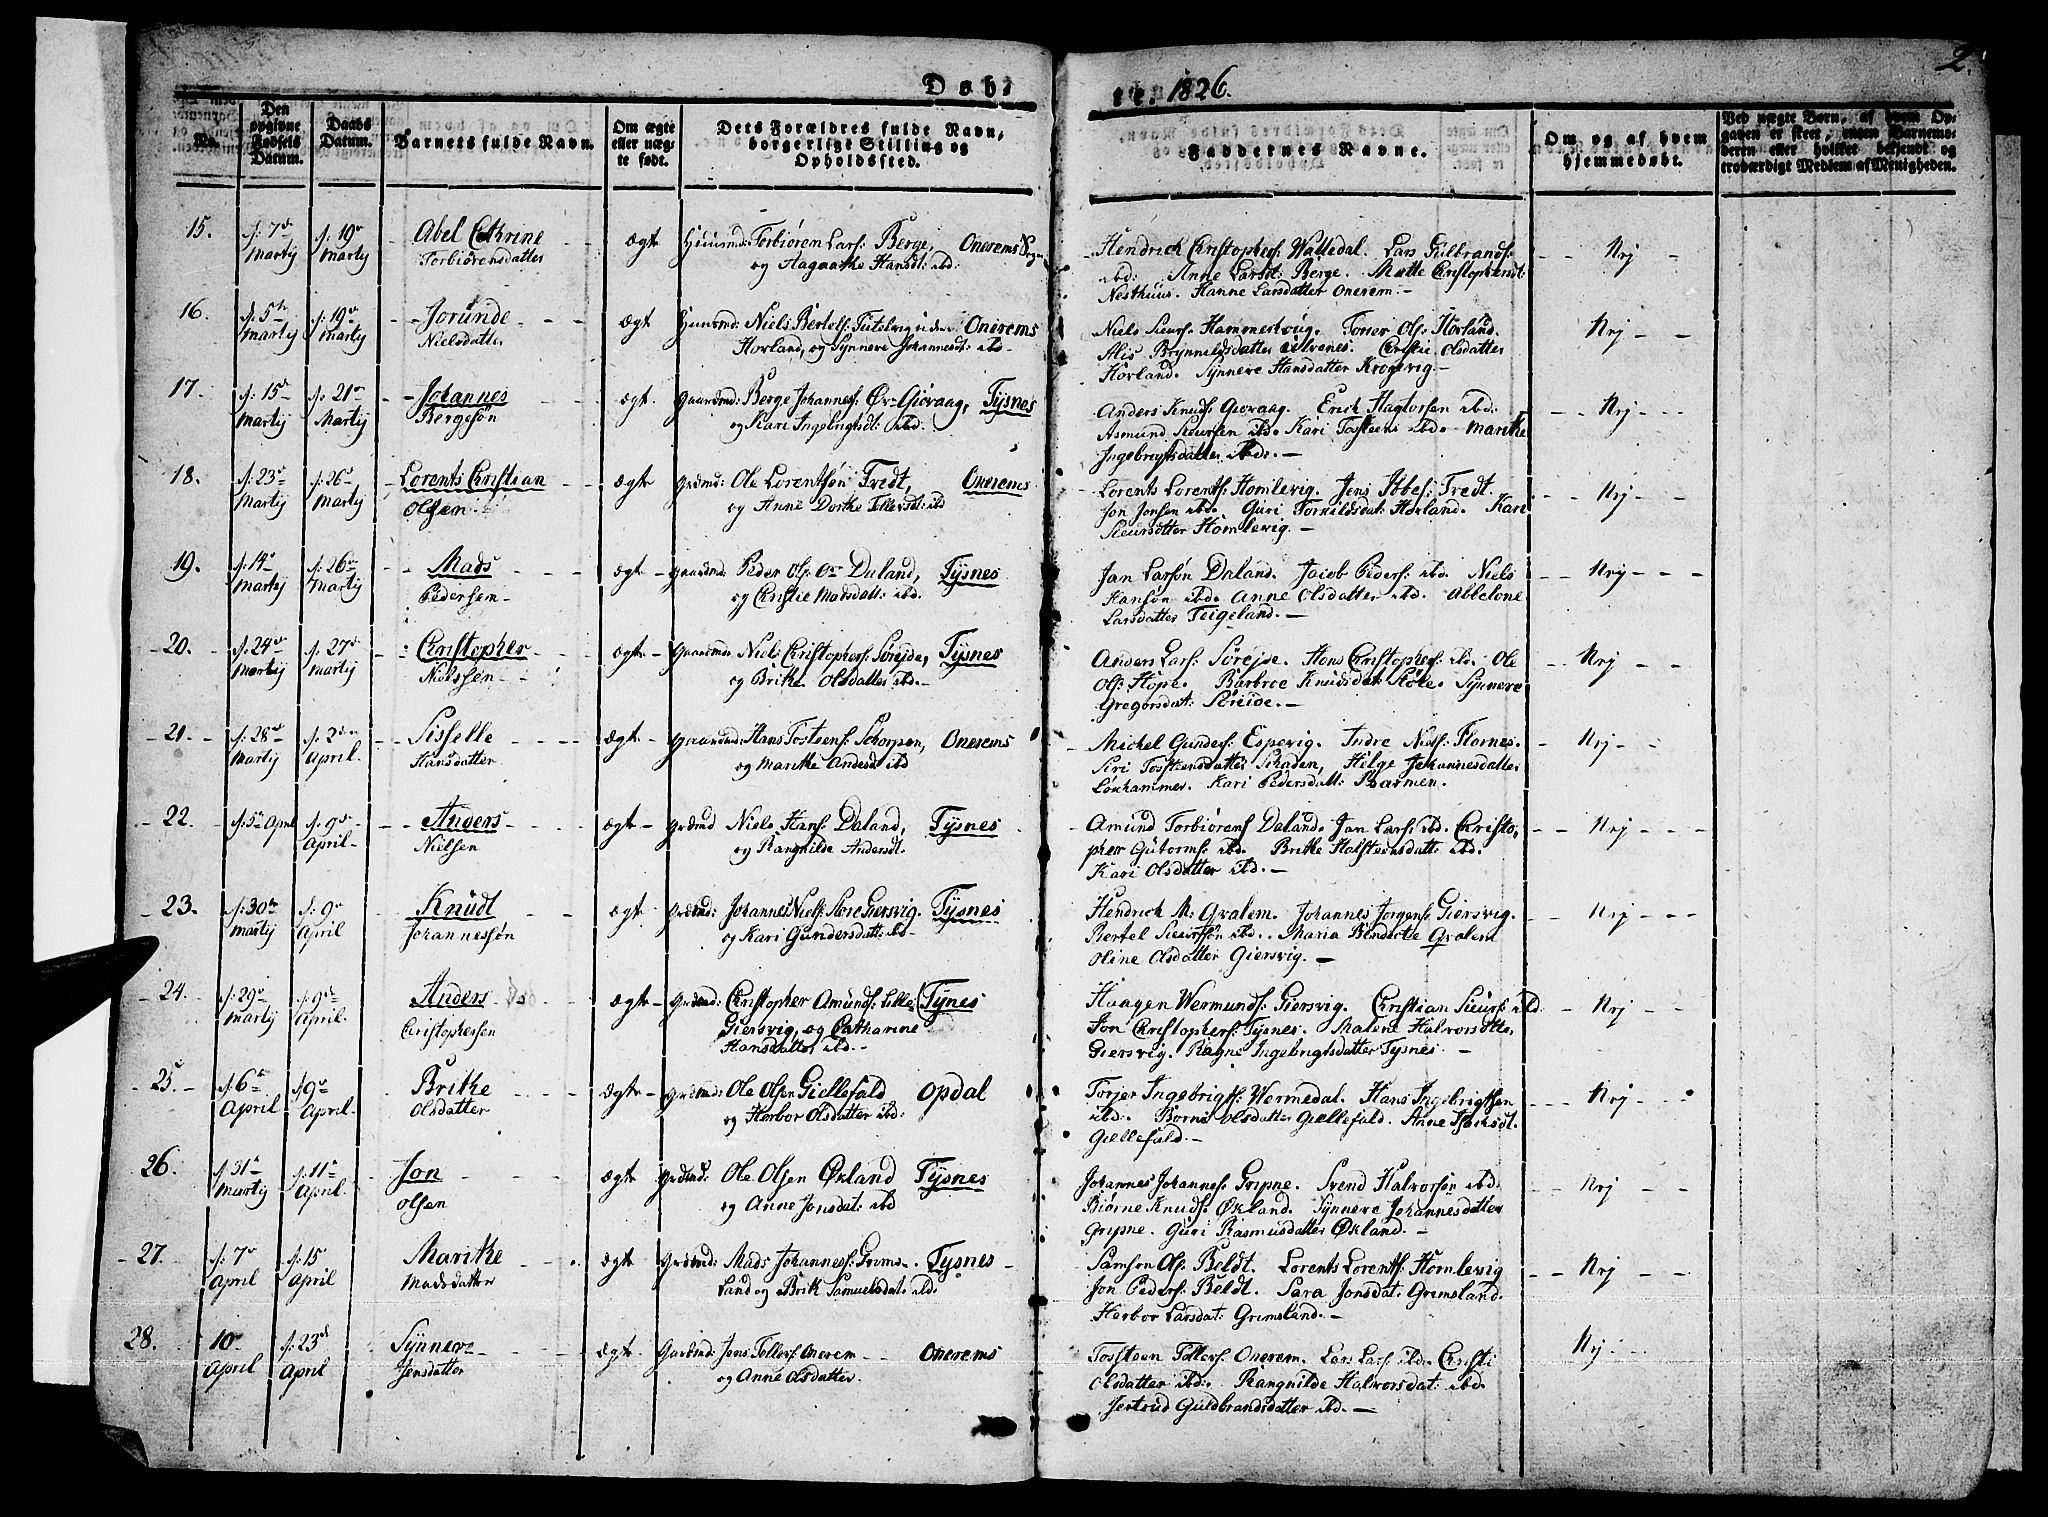 Døbte. 1826.
2.
No.
Den opgivne Fødsels Datum.
Daabs Datum.
Barnets fulde Navn.
Om ægte eller uægte født.
Dets Forældres fulde Navn, borgerlige Stilling og Opholdsted.
Faddernes Navne.
Om og af hvem hjemmedøbt.
Ved uægte Børn, af hvem Opgaven er skeet, enten Barnemoderen eller hvilket bekjendt og troværdigt Medlem af Menigheden.
15. d: 7de Martij d: 19de Martij Abel Cathrine Torbiørensdatter ægt
Huusmd: Torbiøren Lars: Berge, Onerems Sogn
og Aagaathe Hansdt: ibd:
Hendrich Christophers: Walledal. Lars Gulbrands:
ibd: Anne Larsdt: Berge. Mætte Christophersdt:
Nesthuus. Hanne Larsdatter Onerem.
Nej
16. d: 5te Martij d: 19de Martij Jorunde Nielsdatter ægt
Huusmd: Niels Bertels: under Onerems
Horland, og Synneve Johannesdt: ibd
Niels Sieurs: Hammerhoug. Torrer Ols: Horland.
Alis Brynnildsdatter Christie Olsdatter
Horland. Synneve Hansdatter Krogevig.
Nej
17. d: 15de Martij d: 21de Martij Johannes Bergesøn ægt
Gaardmd: Berge Johannes: Øv: Gioraag, Tysnes
og Kari Ingebrigtsdt: ibd.
Anders Knuds: Gioraag. Erich Hagtorsen ibd.
Asmund Sieursen ibd. Kari Tosteens ibd. Marithe
Ingebrigtsdatter ibd.
Nej
18. d: 23de Martij d: 26de Martij Lorents Christian Olsen ægt
Grdmd: Ole Lorentsøn Tredt, Onerems
og Anne Dorthe Tollersdt: ibd
Lorents Lorents: Homlevig. Jens Tredt.
Jon Jonsen ibd. Guri Tornildsdat: Horland. Kari
Sieursdtter Homlevig.
Nej
19. d: 14de Martij d: 26de Martij Mads Pedersen ægt
Gaardmd: Peder Ols: Øv: Daland, Tysnes
og Christie Madsdatt: ibd.
Jan Larsøn Daland. Jacob Peders: ibd. Niels
Hansøn ibd. Anne Olsdatter ibd. Abbelone
Larsdatter Teigeland.
Nej
20. d: 24de Martij d: 27de Martij Christopher Nielssen ægt
Gaardmd: Niels Christophers: Sørejde, Tysnes
og Brithe Olsdatter ibd.
Anders Lars: Sørejde. Hans Christophers: ibd. Ole
Ols: Hope. Barbroe Knudsdat: Hope. Synneve
Gregorsdat: Søreide.
Nej
21. d: 28de Martij d: 2den April Sisselle Hansdatter ægt
Gaardmd: Hans Tosteens: Schorpen, Onerems
og Marithe Andersd: ibd
Michel Gunders: Espevig. Indre Niels: Flornes.
Siri Tosteensdatter Skaden, Helge Johannesdatter
Lønhammer. Kari Pedersdatt: Barmen.
Nej
22. d: 5te April d: 9de April Anders Nielsen ægt
Grdmd Niels Hans: Daland, Tysnes
og Rangnilde Andersdt.
Amund Torbiørens: Daland. Jan Lars: ibd. Christo,
pher Gutorms: ibd. Brithe Halsteensdatt: ibd.
Kari Olsdatter ibd.
Nej
23. d: 30te Martij d: 9de April Knudt Johannessøn ægt
Grdmd: Johannes Niels: Store Giersvig. Tysnes
og Kari Gundersdatt: ibd
Hendrich M: Gralem. Johannes Jorgens: Giersvig.
Bertel Sieurssøn ibd. Maria Bendicte Gralem
Oline Olsdatter Giersvig.
Nej
24. d: 29de Martij d: 9de April Anders Christophersen ægt
Grdmd: Christopher Amunds: Lille Tysnes
Giersvig, og Catharine
Hansdatter ibd.
Haagen Wermunds: Giersvig. Christian Sieurs: ibd
Jon Christophers: Tysnes. Malene Halvorsdtter
Giersvig. Ragne Ingebrigtsdatter Tysnes.
Nej
25. d: 6te April d: 9de April Brithe Olsdatter ægt
Grdmd: Ole Olsen Giellefald Opdal
og Herbor Olsdatter ibd:
Torjer Ingebrigts: Wermedal. Hans Ingebrigtsen
ibd. Borni Olsdatter Giellefald. Anne
Giellefald.
Nej
26. d: 31te Martij d: 11te April Jon Olsen ægt
Grdmd: Ole Olsen Økland Tysnes
og Anne Jonsdat: ibd
Johannes Johannes: Gripne. Svend Halvorsøn ibd.
Biørne Knuds: Økland. Synneve Johannesdatter
Gripne. Guri Rasmusdatter Økland.
Nej
27. d: 7de April d: 15 April Marithe Madsdatter ægt
Grdmd: Mads Johannes: Grims- Tysnes
land og Brith Samuelsdat: ibd.
Samson Ols: Beldt. Lorents Lorents: Homlevig
Jon Peders: Beldt. Sara Jonsdat: Gremsland.
Herbor Larsdat: Grimsland.
Nej
28. 10de April d: 23de April Synneve Jensdatter ægt
Gardmd: Jens Tollers: Onerem Onerems
og Anne Olsdatter.
Tosteen Tollers: Onerem. Lars Lars: ibd. Christi
Olsdatter ibd. Rangnilde Halvorsdat: ibd.
Jertrud Guldbrandsdatter ibd.
Nej